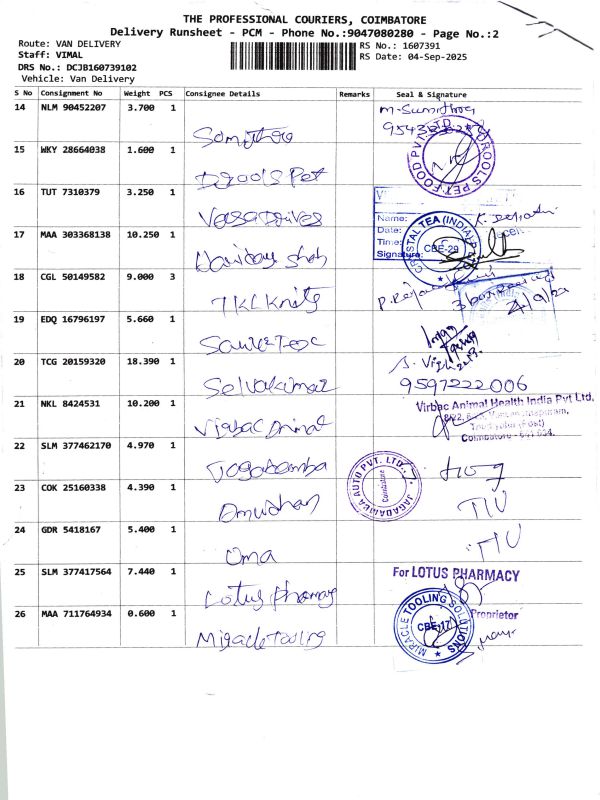 THE PROFESSIONAL COURIERS, COIMBATORE
Delivery Runsheet - PCM - Phone No.:9047080280 - Page No.:2
Route: VAN DELIVERY
Staff: VIMAL
DRS No.: DCJB160739102
Vehicle: Van Delivery
RS No.: 1607391
RS Date: 04-Sep-2025
S No Consignment No Weight PCS Consignee Details Remarks Seal & Signature
14 NLM 90452207 3.700 1
15 WKY 28664038 1.600 1 Drools Pet
DROOLS PET FOOD PVT. LTD
16 TUT 7310379 3.250 1
Name:
Date:
Time:
Signature:
CRYSTAL TEA (INDIA)
CBE-29
17 MAA 303368138 10.250 1
18 CGL 50149582 9.000 3 TKL Knits
19 EDQ 16796197 5.660 1
20 TCG 20159320 18.390 1 Selvakumar
9597222006
21 NKL 8424531 10.200 1 Virbac Animal
Virbac Animal Health India Pvt Ltd.
Coimbatore - 641 024.
22 SLM 377462170 4.970 1 Jagadamba
JAGADAMBA AUTO PVT. LTD.
Coimbatore
23 COK 25160338 4.390 1 Amudhan
24 GDR 5418167 5.400 1 Uma
25 SLM 377417564 7.440 1 Lotus Pharmacy
For LOTUS PHARMACY
Proprietor
26 MAA 711764934 0.600 1 Miracle Tooling
MIRACLE TOOLING SOLUTIONS
CBE-17